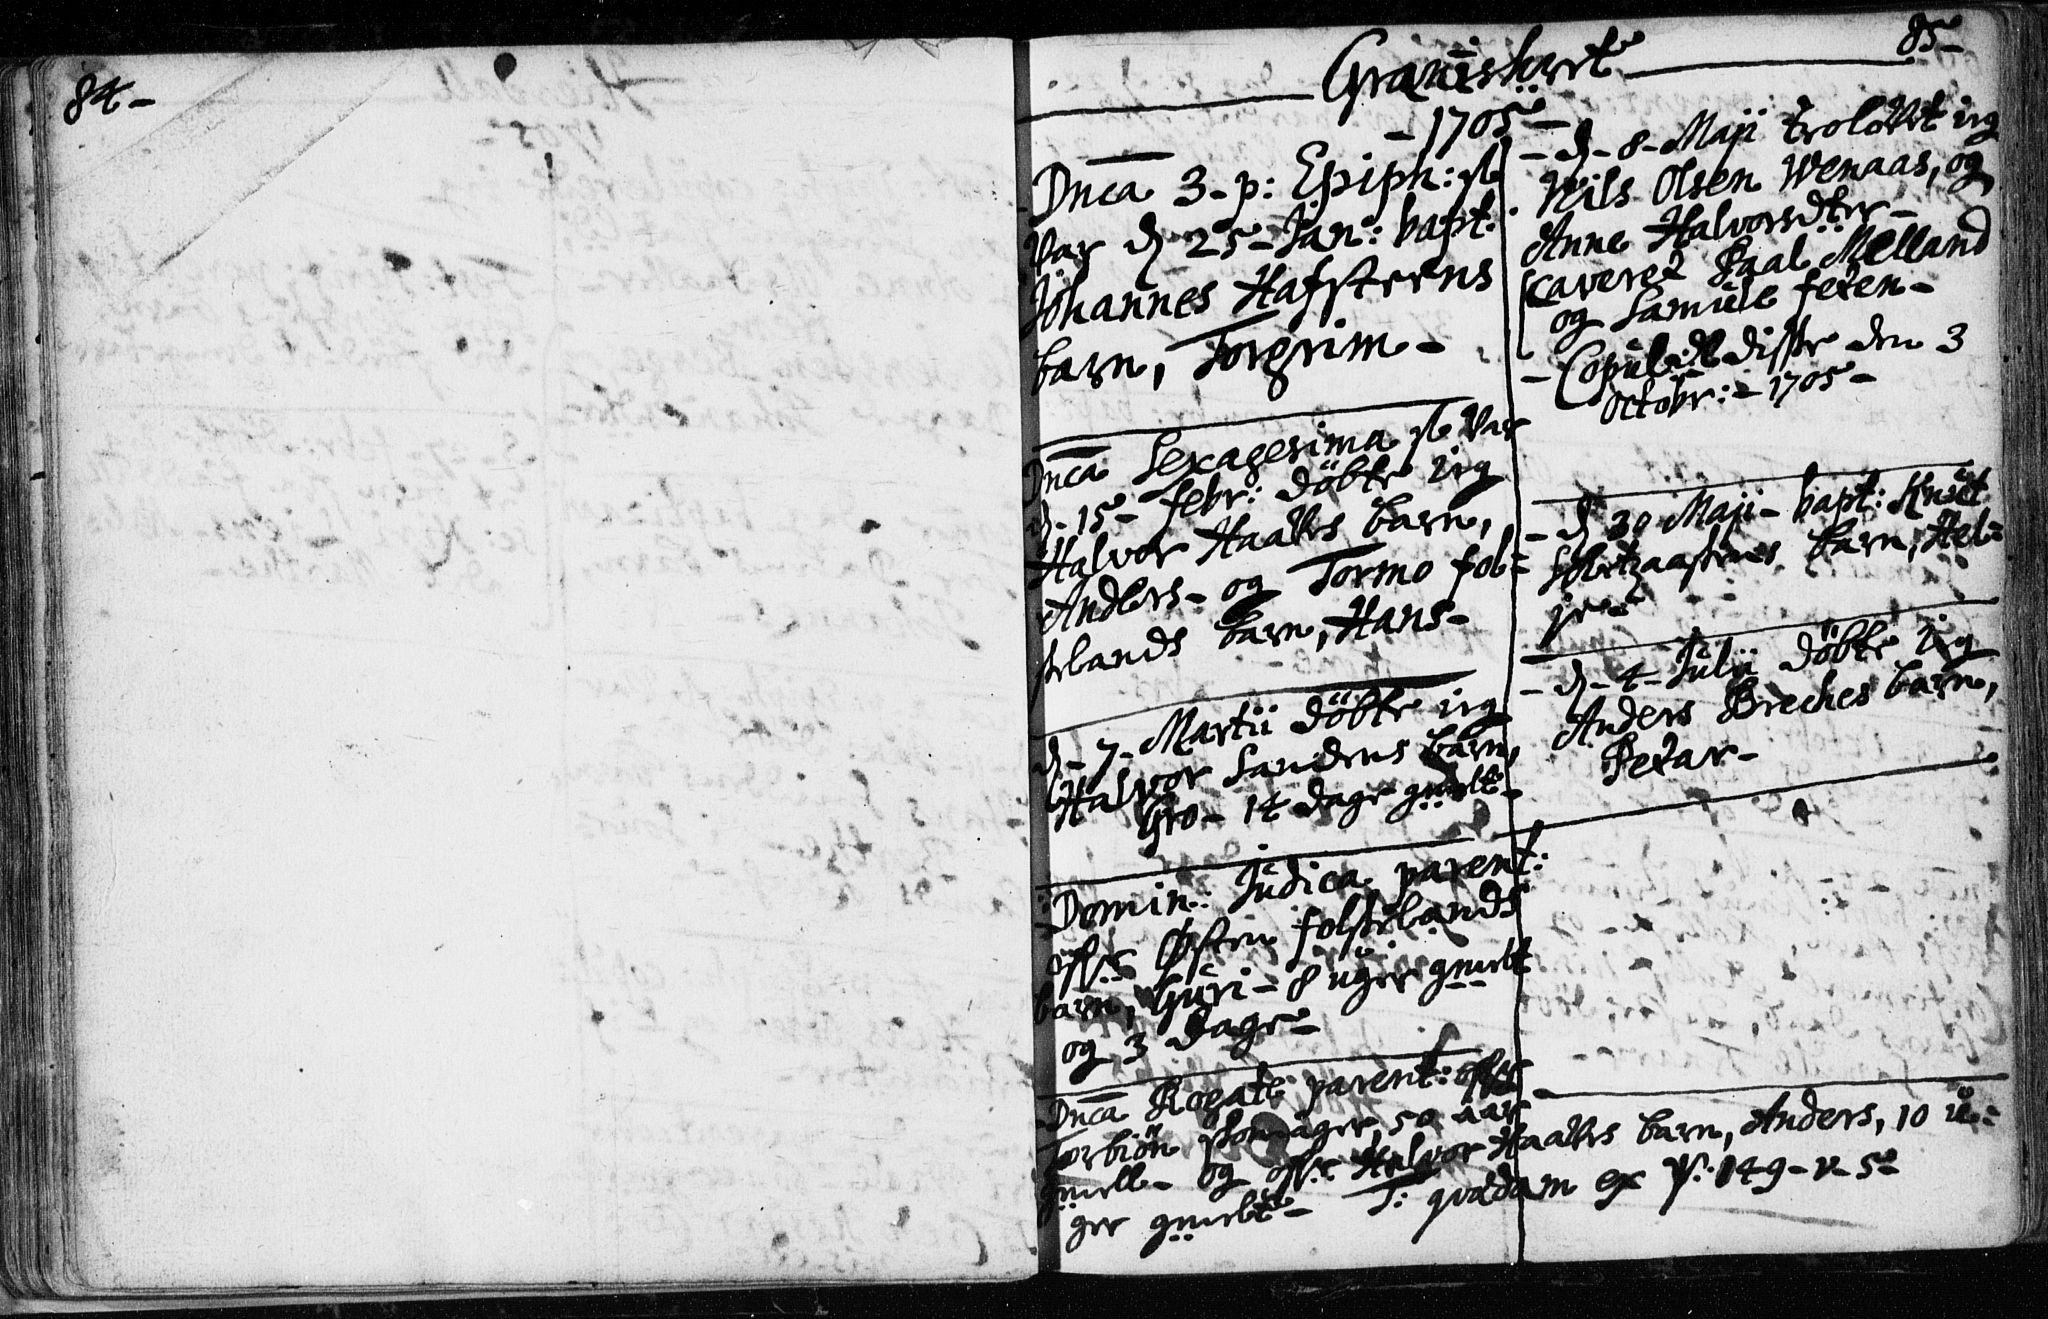 84-
85-
Graniskert
- 1705 -
Dnca 3- p: Epiph: so
var d 25- Jan: bapt:
Johannes Hafsteens
barn, Torgrim-
Dnca Sexagesima so var
d- 15- febr: döbte ieg
Halvor Haatvs barn,
Anders- og Tormo fol-
selands barn, Hans-
d- 7- Martii döbte ieg
Halvor Sandens barn,
Gro- 14 dage gml-
Domin: Judica parent:
Østen folselands
barn, Guri- 8 uger gml
og 3 dage-
Dnca Rogate parent:
Torbiön 50 aar
gml- og Halvor Haatvs barn, Anders, 10 u-
ger gml- T: qvædam ex ps. 149- v- 5-
- d- 8- Maji trolovet ieg
Nils Olsen Wenaas, og
Anne Halvorsdter-
caverer Paal Melland
og Samuel feten-
- Copul: disse den 3
Octobr:- 1705-
- d 30 Maji- bapt: Knut
barn, Hel-
je-
- d- 4- Julii döbte ieg
Anders Breches barn,
Petar-